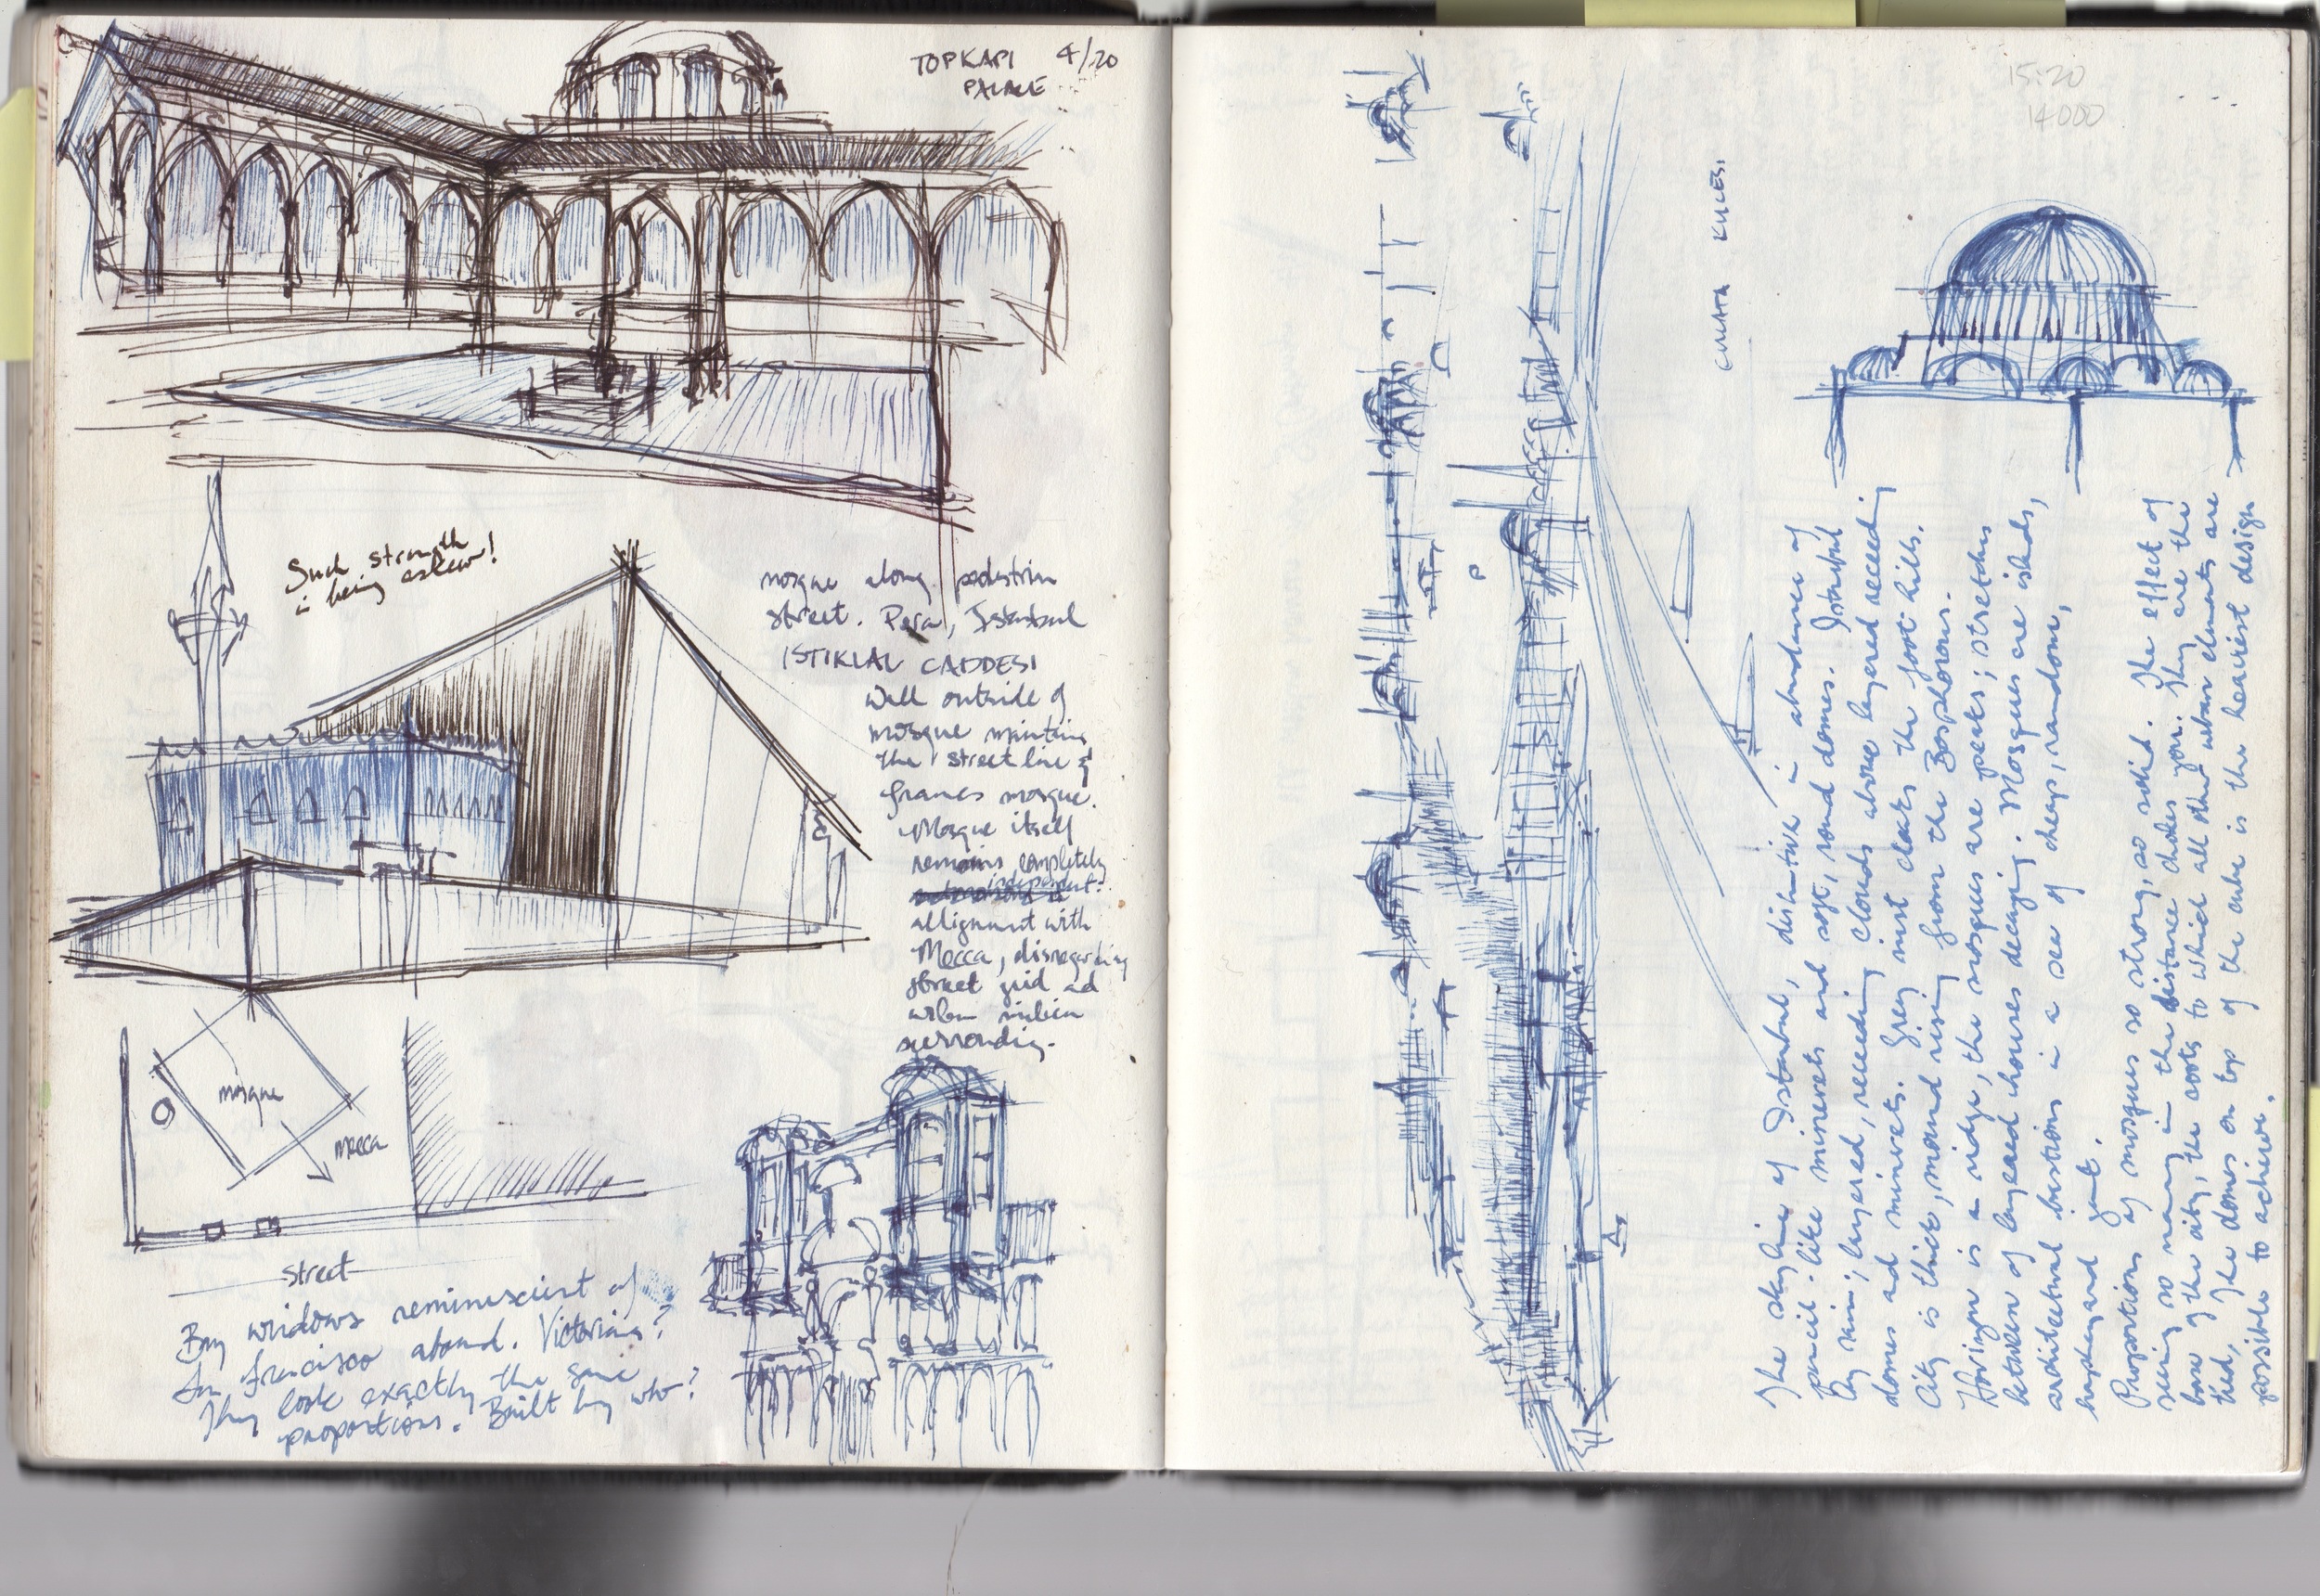 TOPKAPI 4/20
PALACE
Such strength
in being askew!
mosque along pedestrian
street. Pera, Istanbul
ISTIKLAL CADDESI
Wall outside of
mosque maintains
the street line &
frames mosque.
Mosque itself
remains completely
independent.
allignment with
Mecca, disregarding
street grid and
urban milieu
surrounding.
mosque
mecca
street
Bay windows reminiscient of
San Francisco abound. Victorians?
They look exactly the same
proportions. Built by who?
15:20
14000
KULESI
The skyline of Istanbul, distinctive in abundance of
pencil-like minerets and soft, round domes. Istanbul
by rain; layered, receeding clouds above layered receeding
domes and minerets. Grey mist cloaks the foot hills.
City is thick, mound rising from the Bosphorous.
Horizon is a ridge, the mosques are peaks; stretches
between of layered houses decaying. Mosques are islands,
architectural bastions in a sea of cheap, randome,
haphazard
Proportions of mosques so strong, so solid. The effect of
seeing so many in the distance chokes you. They are the
base of the city, the roots to which all other urban elements are
tied, The domes on top of the cube is the heaviest design
possible to achieve.